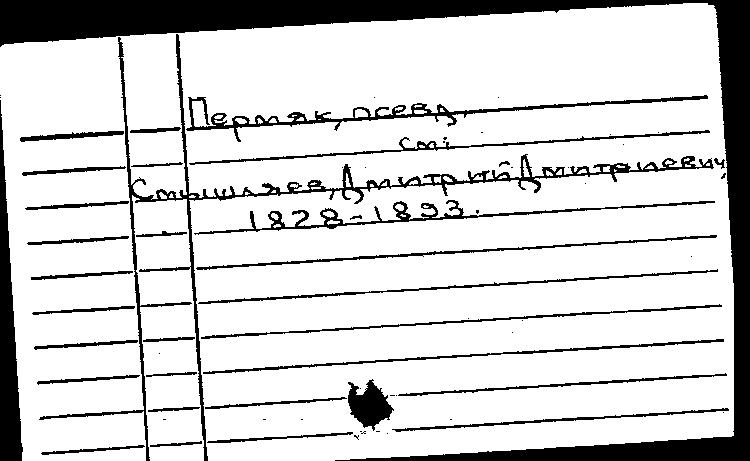 Пермяк, псевд.
см:
Смышляев, Дмитрий Дмитриевич,
1828-1893.